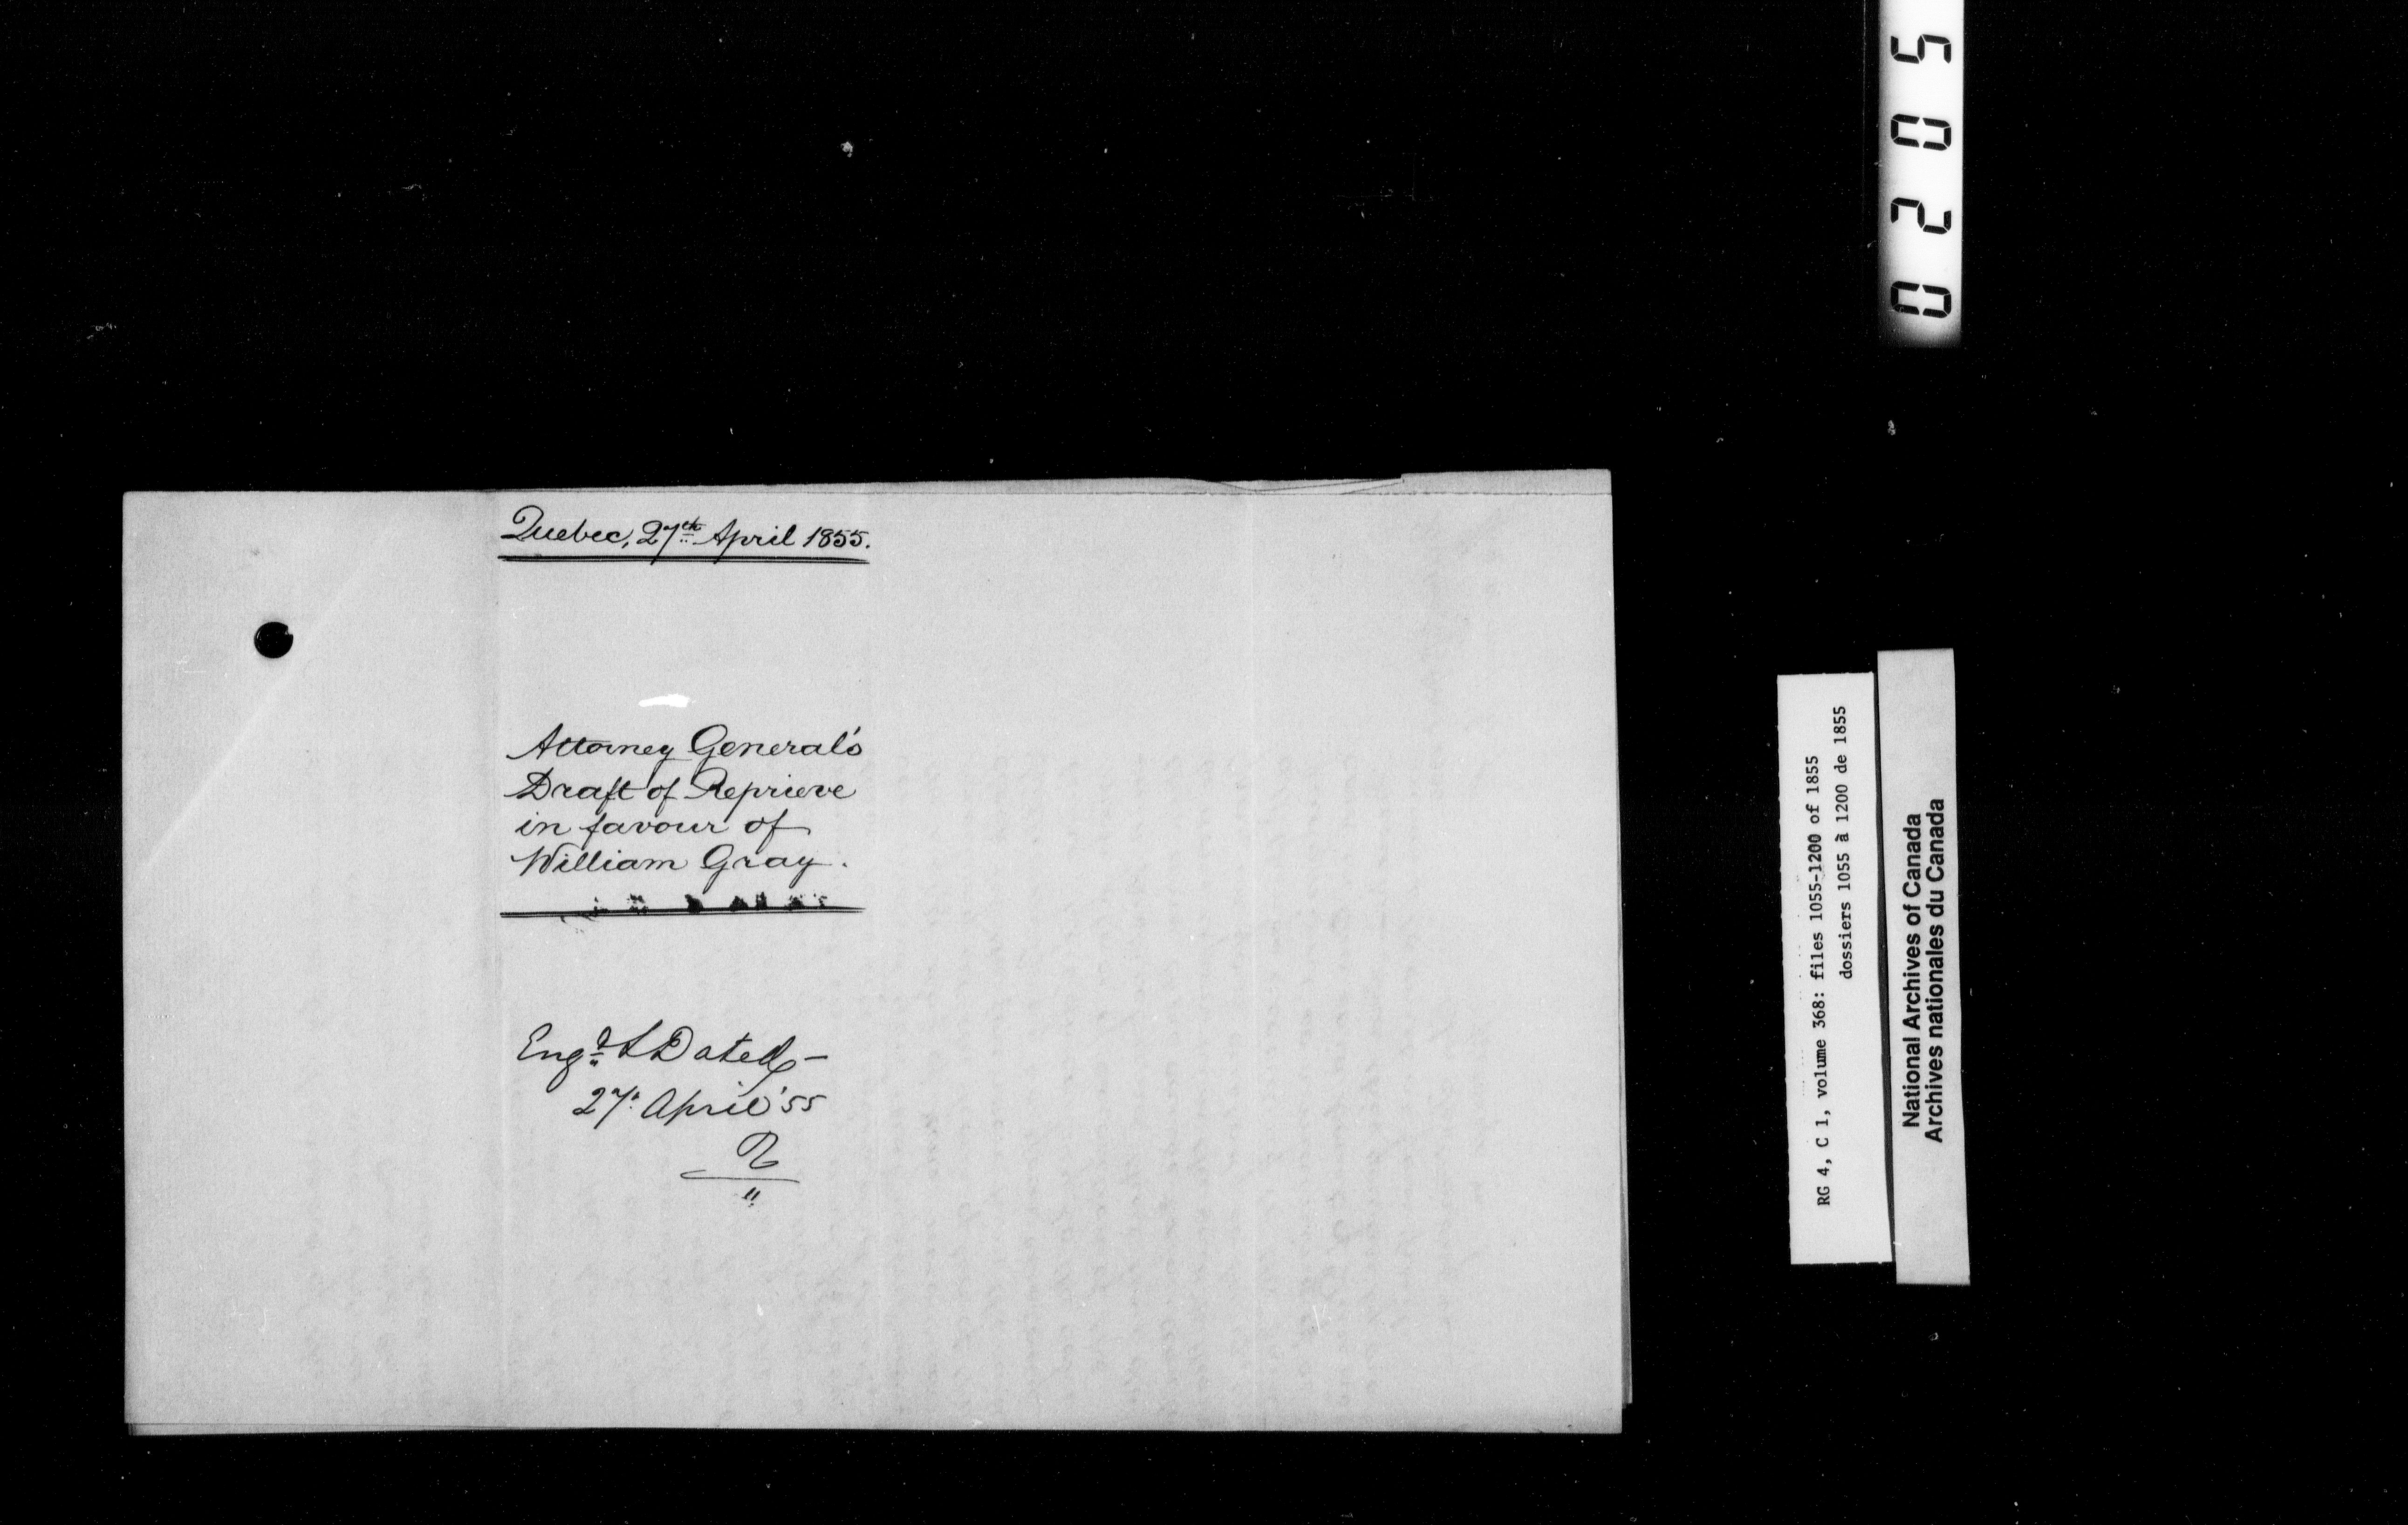 Quebec, 27th April 1855.
Attorney General's
Draft of Reprieve
in favour of
William Gray.
Engd & Dated
27. April '55
0205
RG 4, C 1, volume 368: files 1055-1200 of 1855
dossiers 1055 à 1200 de 1855
National Archives of Canada
Archives nationales du Canada